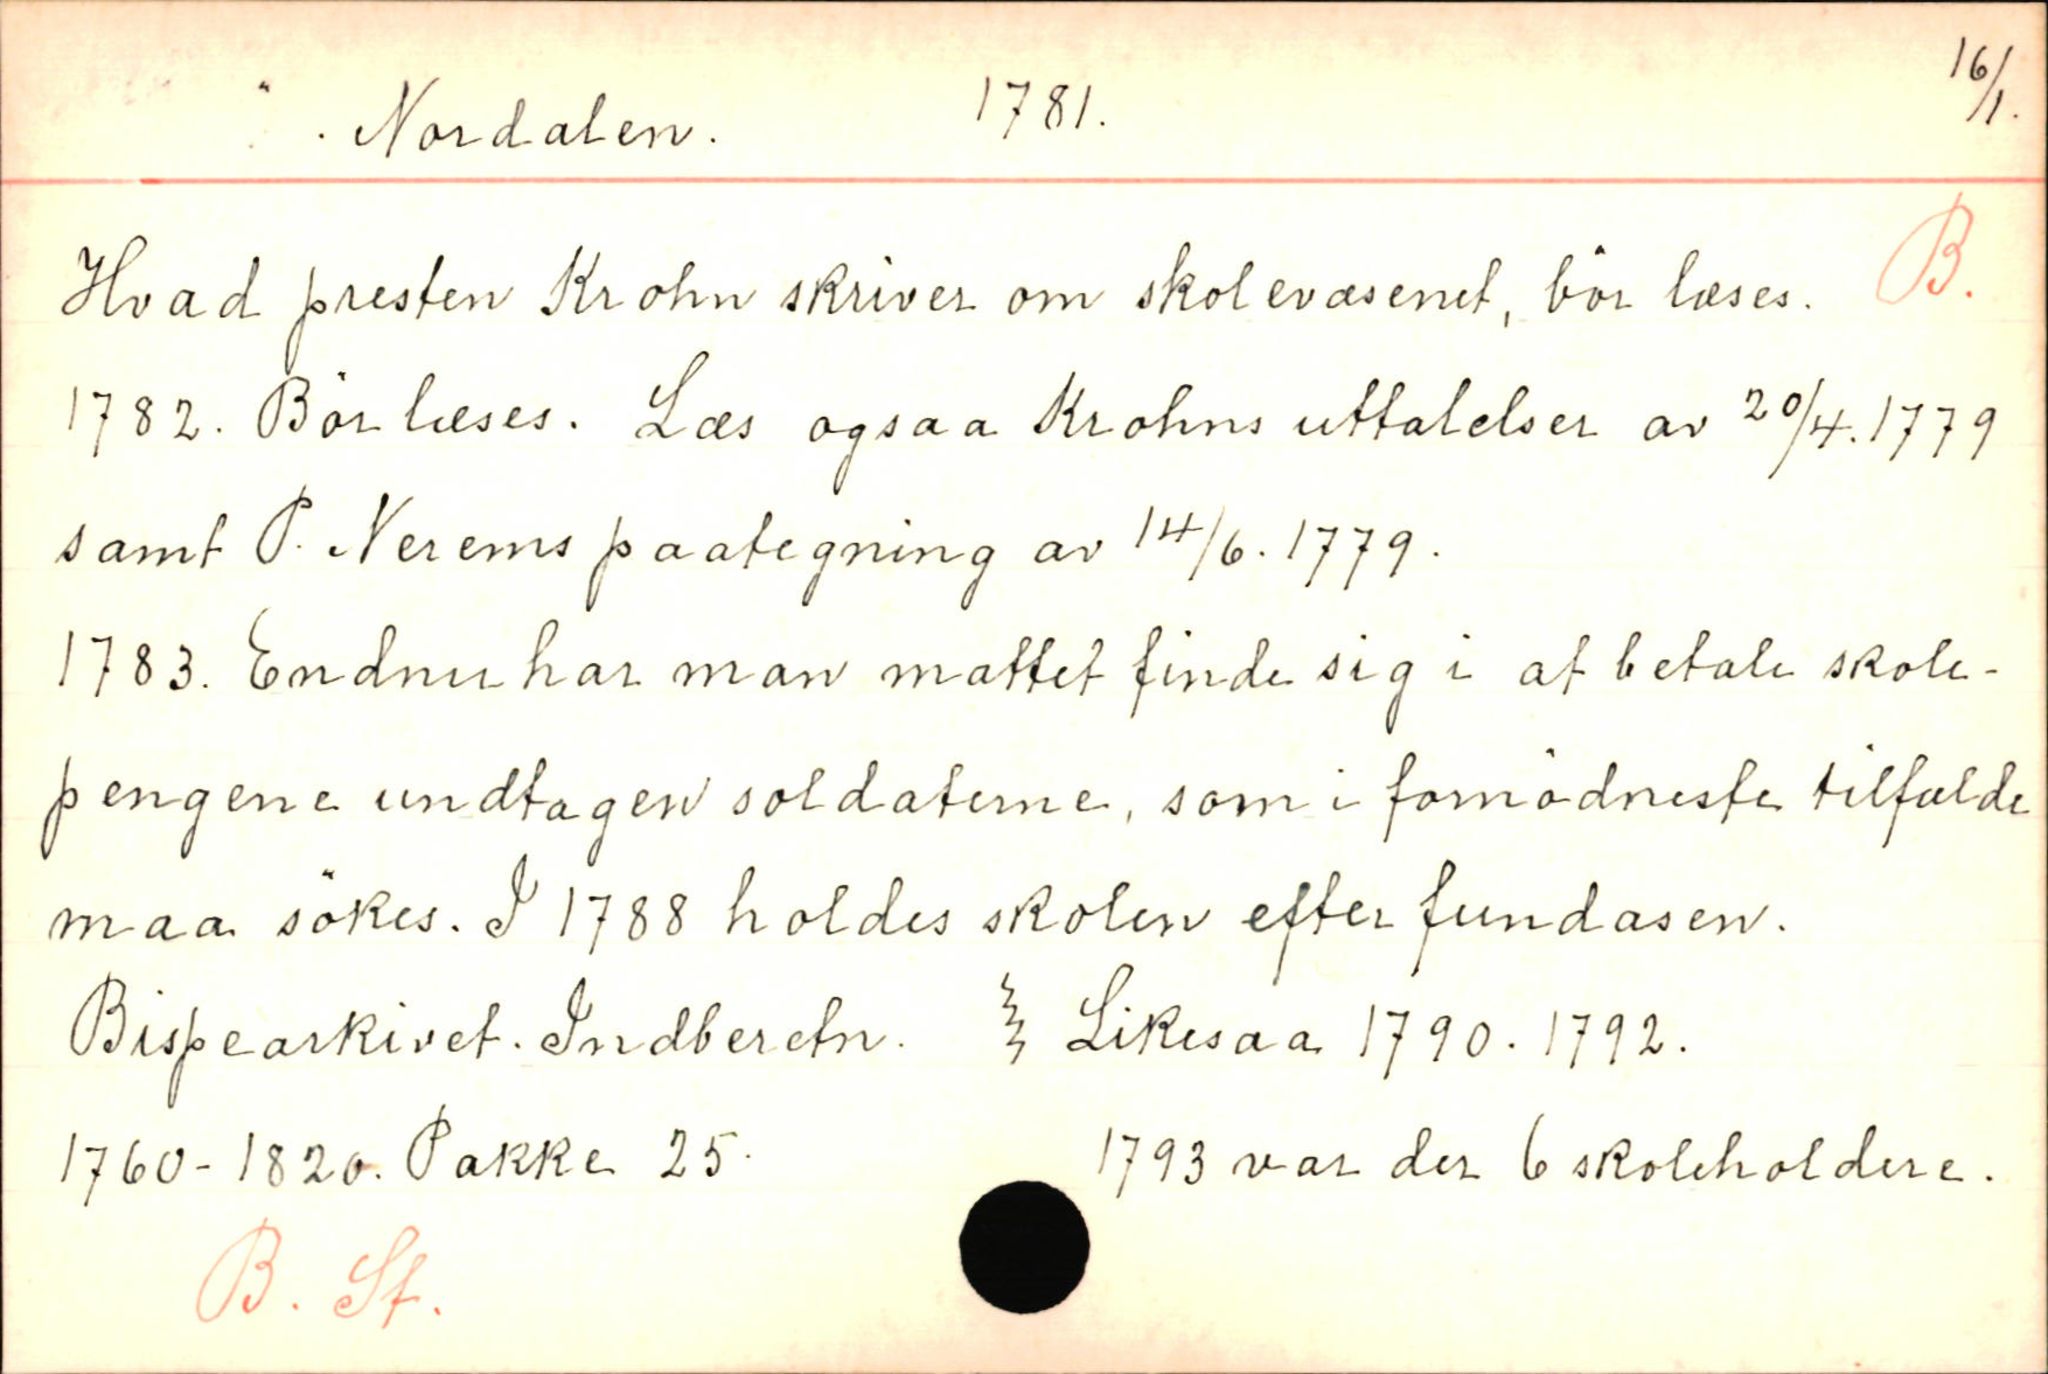 Nordalen. 1781. 16/1.
Hvad presten Krohn skriver om skolevæsenet, bör læses. B.
1782. Bör læses. Læs ogsaa Krohns uttalelser av 20/4. 1779
samt P. Nerems paategning av 14/6. 1779.
1783. Endnu har man mattet finde sig i at betale skole-
pengene undtagen soldaterne, som i fornödneste tilfælde
maa sökes. I 1788 holdes skolen efter fundasen.
Bispearkivet. Indberetn. Likesaa 1790. 1792.
1760-1820. Pakke 25. 1793 var der 6 skoleholdere.
B. St.